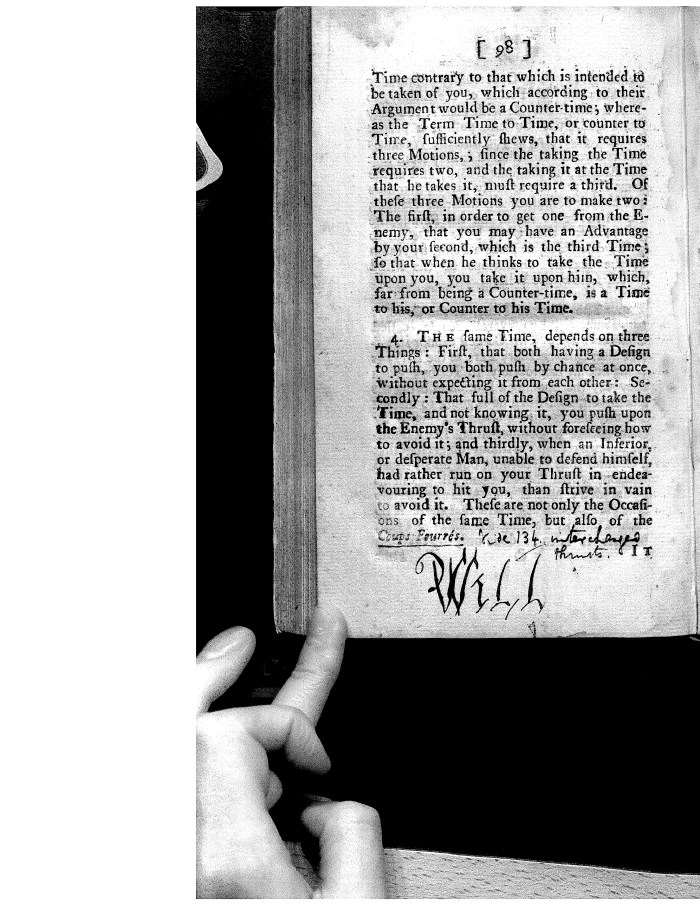 [ 98 ]
Time contrary to that which is intended to
be taken of you, which according to their
Argument would be a Counter-time; where-
as the Term Time to Time, or counter to
Time, ſufficiently ſhews, that it requires
three Motions, ; ſince the taking the Time
requires two, and the taking it at the Time
that he takes it, muſt require a third. Of
theſe three Motions you are to make two:
The firſt, in order to get one from the E-
nemy, that you may have an Advantage
by your ſecond, which is the third Time;
ſo that when he thinks to take the Time
upon you, you take it upon him, which,
far from being a Counter-time, is a Time
to his, or Counter to his Time.
4. THE ſame Time, depends on three
Things: Firſt, that both having a Deſign
to puſh, you both puſh by chance at once,
without expecting it from each other: Se-
condly: That full of the Deſign to take the
Time, and not knowing it, you puſh upon
the Enemy's Thruſt, without foreſeeing how
to avoid it; and thirdly, when an Inferior,
or deſperate Man, unable to defend himſelf,
had rather run on your Thruſt in endea-
vouring to hit you, than ſtrive in vain
to avoid it. Theſe are not only the Occaſi-
ons of the ſame Time, but alſo of the
Coups Fourrés. Vide 134. interchanged
thrusts. IT
WELL